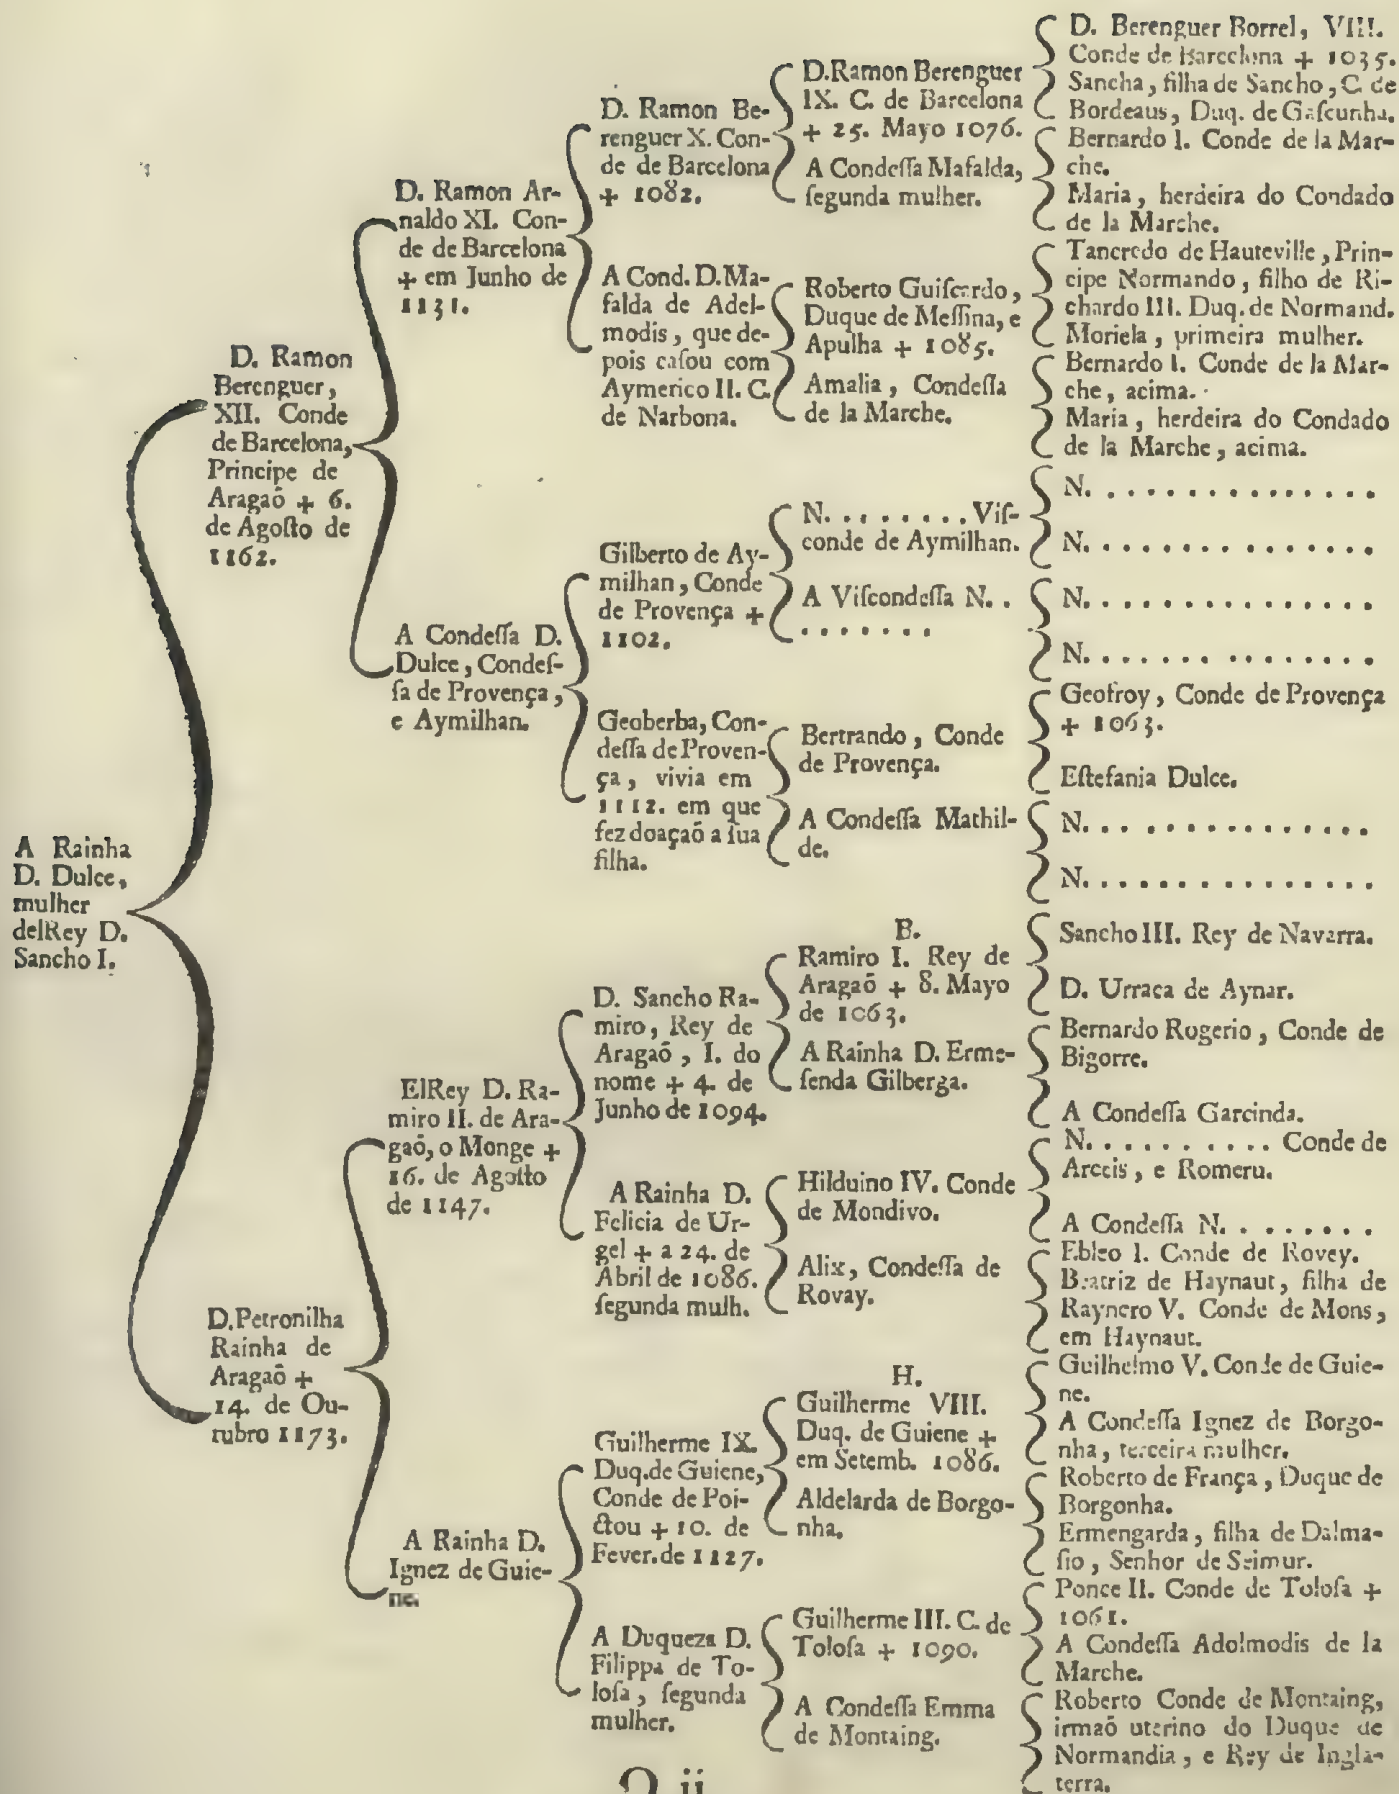 A Rainha
D. Dulce,
mulher
delRey D.
Sancho I.
D. Ramon
Berenguer,
XII. Conde
de Barcelona,
Principe de
Aragaõ + 6.
de Agoſto de
1162.
D. Petronilha
Rainha de
Aragaõ +
14. de Ou-
tubro 1173.
D. Ramon Ar-
naldo XI. Con-
de de Barcelona
+ em Junho de
1131.
A Condeſſa D.
Dulce, Condeſ-
ſa de Provença,
e Aymilhan.
ElRey D. Ra-
miro II. de Ara-
gaõ, o Monge +
16. de Agoſto
de 1147.
A Rainha D.
Ignez de Guie-
ne.
D. Ramon Be-
renguer X. Con-
de de Barcelona
+ 1082.
A Cond. D. Ma-
falda de Adel-
modis, que de-
pois caſou com
Aymerico II. C.
de Narbona.
Gilberto de Ay-
milhan, Conde
de Provença +
1102.
Geoberba, Con-
deſſa de Proven-
ça, vivia em
1112. em que
fez doaçaõ a ſua
filha.
D. Sancho Ra-
miro, Rey de
Aragaõ, I. do
nome + 4. de
Junho de 1094.
A Rainha D.
Felicia de Ur-
gel + a 24. de
Abril de 1086.
ſegunda mulh.
Guilherme IX.
Duq. de Guiene,
Conde de Poi-
ctou + 10. de
Fever. de 1127.
A Duqueza D.
Filippa de To-
loſa, ſegunda
mulher.
D. Ramon Berenguer
IX. C. de Barcelona
+ 25. Mayo 1076.
A Condeſſa Mafalda,
ſegunda mulher.
Roberto Guiſcardo,
Duque de Meſſina, e
Apulha + 1085.
Amalia, Condeſſa
de la Marche.
N. . . . . . . . Viſ-
conde de Aymilhan.
A Viſcondeſſa N. .
. . . . . . .
Bertrando, Conde
de Provença.
A Condeſſa Mathil-
de.
B.
Ramiro I. Rey de
Aragaõ + 8. Mayo
de 1063.
A Rainha D. Erme-
ſenda Gilberga.
Hilduino IV. Conde
de Mondivo.
Alix, Condeſſa de
Rovay.
H.
Guilherme VIII.
Duq. de Guiene +
em Setemb. 1086.
Aldelarda de Borgo-
nha.
Guilherme III. C. de
Toloſa + 1090.
A Condeſſa Emma
de Montaing.
D. Berenguer Borrel, VIII.
Conde de Barcelona + 1035.
Sancha, filha de Sancho, C. de
Bordeaus, Duq. de Gaſcunha.
Bernardo I. Conde de la Mar-
che.
Maria, herdeira do Condado
de la Marche.
Tancredo de Hauteville, Prin-
cipe Normando, filho de Ri-
chardo III. Duq. de Normand.
Moriela, primeira mulher.
Bernardo I. Conde de la Mar-
che, acima.
Maria, herdeira do Condado
de la Marche, acima.
N. . . . . . . . . . . . . . .
N. . . . . . . . . . . . . . .
N. . . . . . . . . . . . . . .
N. . . . . . . . . . . . . . .
Geofroy, Conde de Provença
+ 1063.
Eſtefania Dulce.
N. . . . . . . . . . . . . . .
N. . . . . . . . . . . . . . .
Sancho III. Rey de Navarra.
D. Urraca de Aynar.
Bernardo Rogerio, Conde de
Bigorre.
A Condeſſa Garcinda.
N. . . . . . . . . . Conde de
Arceis, e Romeru.
A Condeſſa N. . . . . . . .
Ebleo I. Conde de Rovey.
Beatriz de Haynaut, filha de
Raynero V. Conde de Mons,
em Haynaut.
Guilhelmo V. Conde de Guie-
ne.
A Condeſſa Ignez de Borgo-
nha, terceira mulher.
Roberto de França, Duque de
Borgonha.
Ermengarda, filha de Dalma-
ſio, Senhor de Seimur.
Ponce II. Conde de Toloſa +
1061.
A Condeſſa Adolmodis de la
Marche.
Roberto Conde de Montaing,
irmaõ uterino do Duque de
Normandia, e Rey de Ingla-
terra.
ii